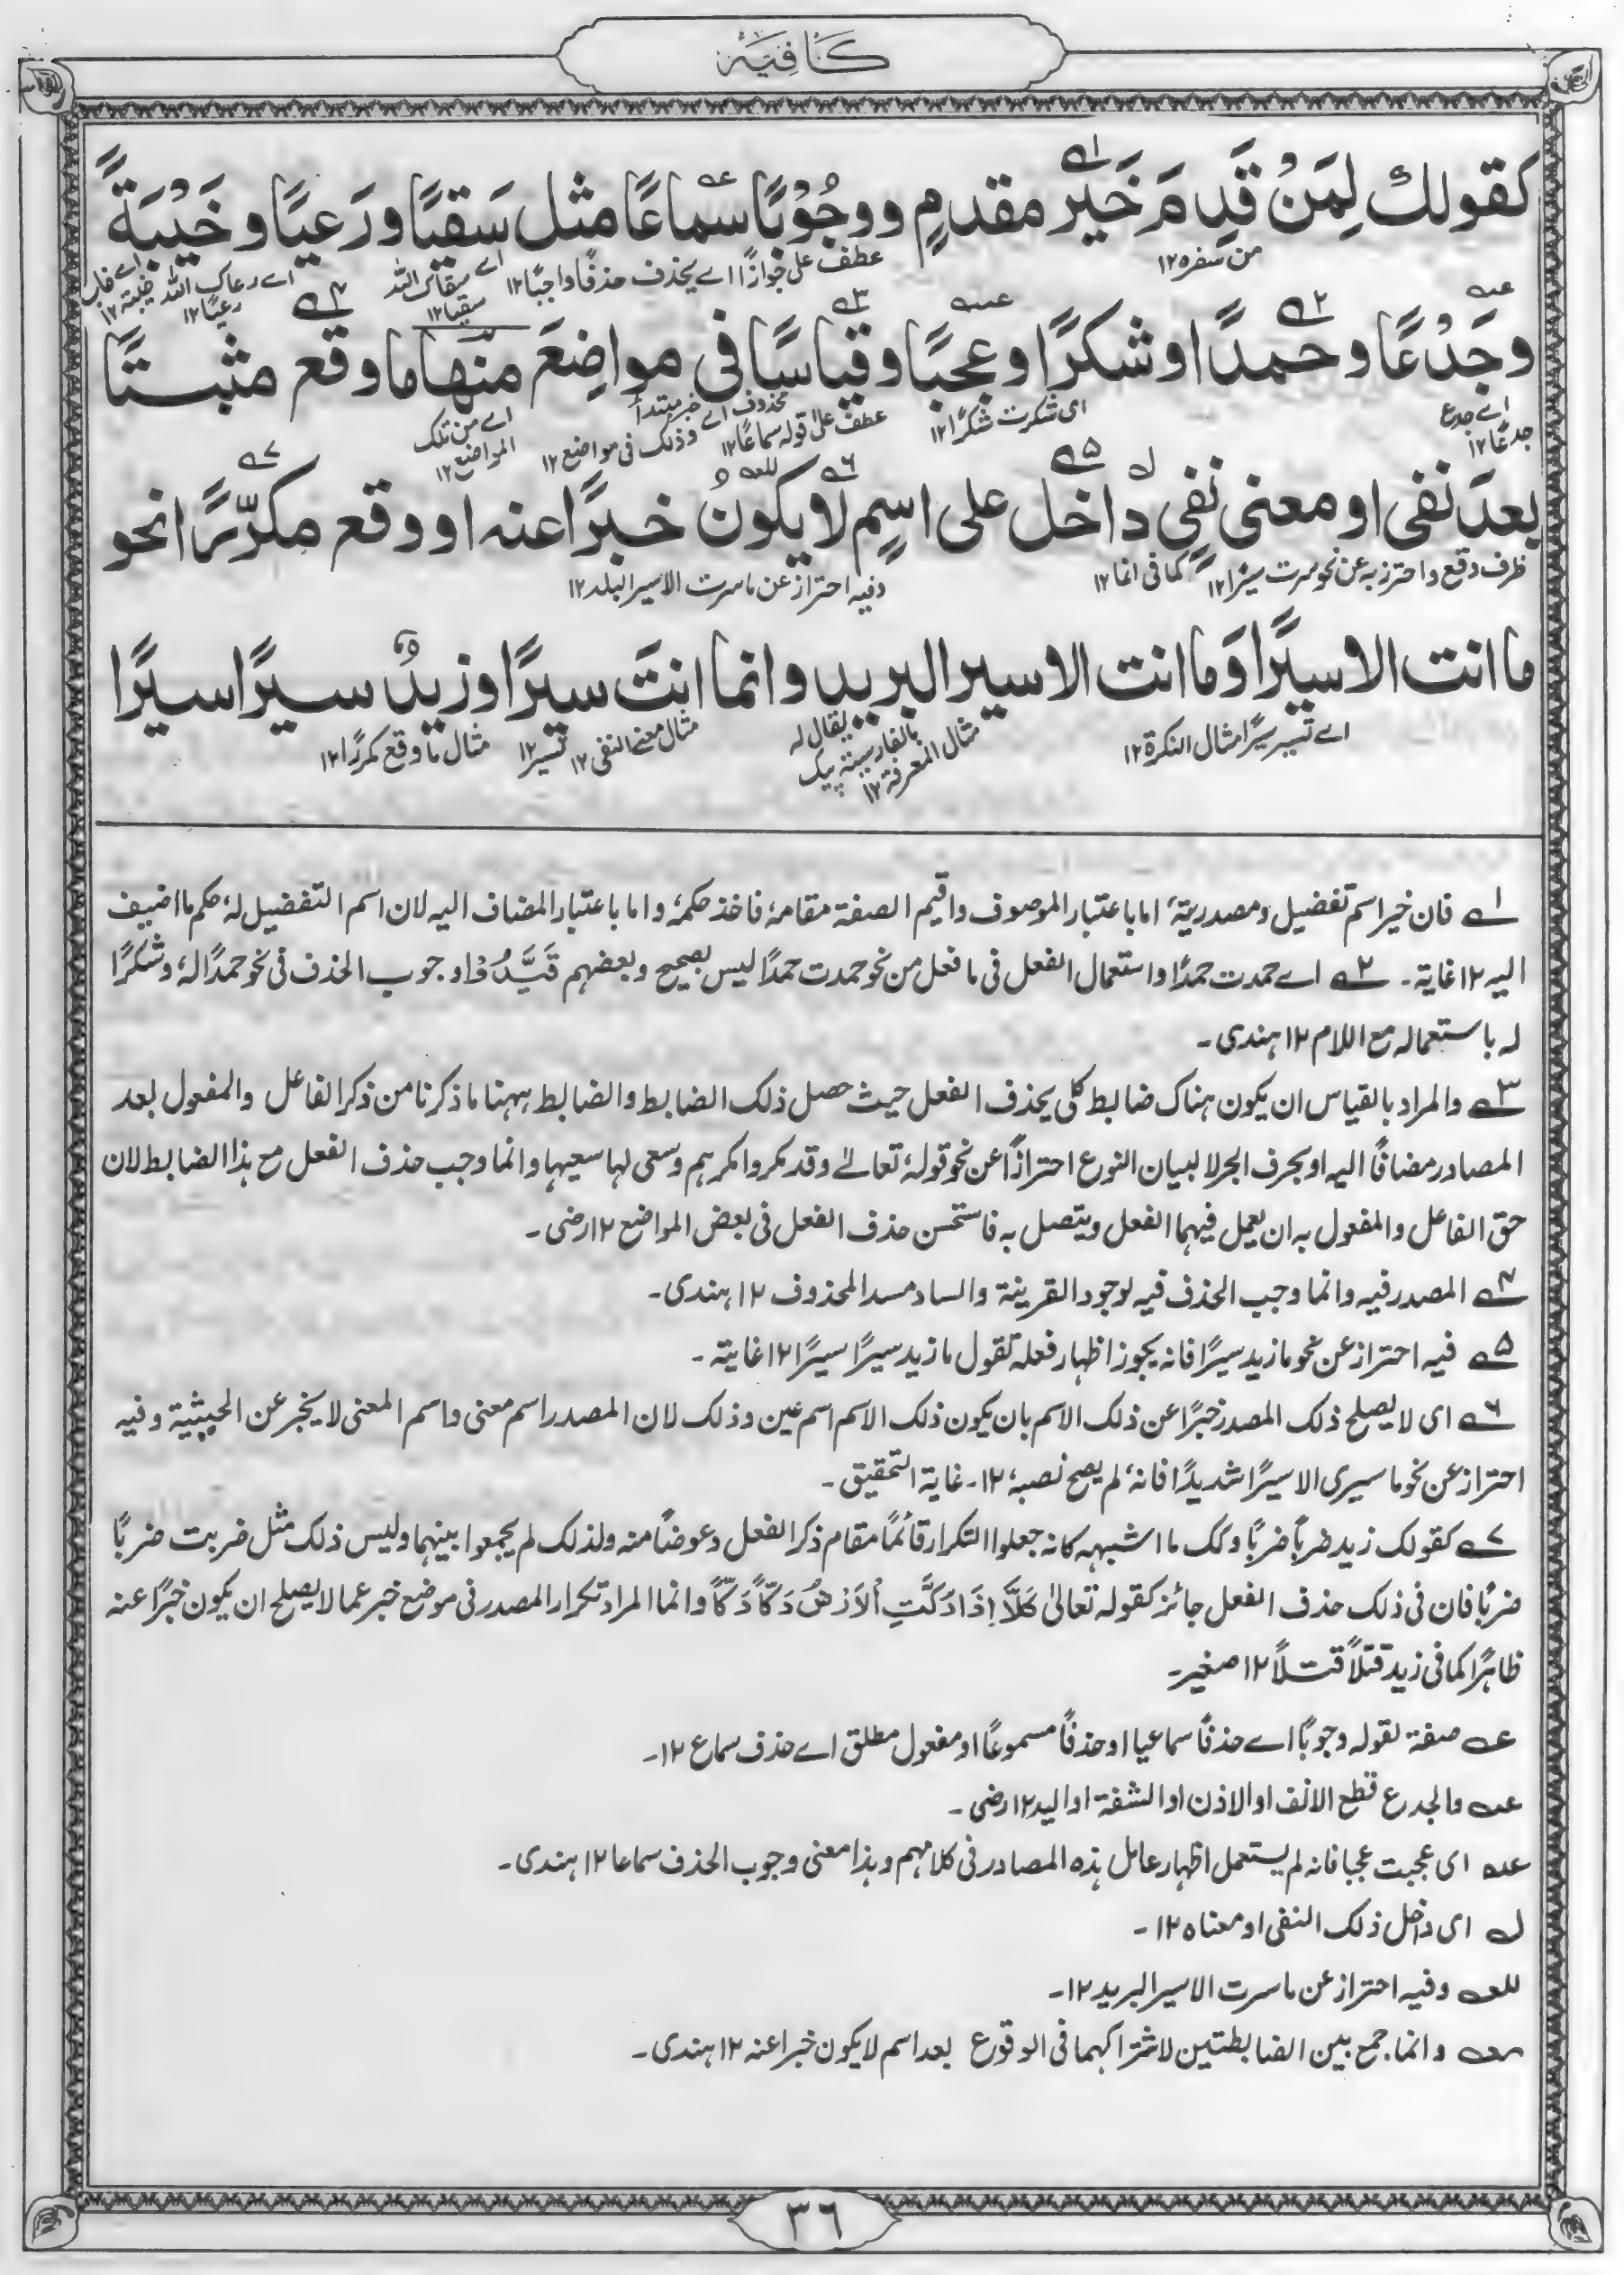 كافية
كقولك لِمَنْ قَدِمَ خَيْرَ مقدمٍ ووجُوْبًا سماعًا مثل سَقيًا ورَعيًا وخَيْبَةً
من سفره ١٢
عطف على جوازًا اے يحذف حذفًا واجبًا ١٢
اے سقاك اللّٰه سقيا ١٢
اے رعاك اللّٰه رعيًا ١٢
اے خاب خيبة ١٢
وجَدْعًا وحمدًا وشكرًا وعجبًا وقياسًا فى مواضِعَ منها ما وقع مثبتًا
اے جدع جدعًا ١٢
اى شكرت شكرًا ١٢
عطف على قوله سماعًا ١٢
محذوف اے خبر مبتدأ وذلك فى مواضع ١٢
اے من تلك المواضع ١٢
بعدَ نفى او معنى نفىٍ داخل على اسمٍ لا يكونُ خبرًا عنه او وقع مكرّرًا نحو
ظرف وقع واحترز به عن نحو سرت سيرًا ١٢
كما فى انما ١٢
وفيه احتراز عن ما سرت الا سير البلد ١٢
ما انت الا سيرًا وَما انت الا سير البريد وانما انتَ سيرًا وزيدٌ سيرًا سيرًا
اے تسير سيرًا مثال النكرة ١٢
يقال له بالفارسية پيك
مثال المعرفة ١٢
مثال معنے النفى ١٢
تسير ١٢
مثال ما وقع مكررًا ١٢
١ے فان خيرا اسم تفضيل ومصدريته اما باعتبار الموصوف واقيم الصفة مقامه فاخذ حكمه واما باعتبار المضاف اليه لان اسم التفضيل له حكم ما اضيف
اليه ١٢ غاية۔ ٢ے اے حمدت حمدًا واستعمال الفعل فى ما فعل من نحو حمدت حمدًا ليس بصحيح وبعضهم قَيَّدُوْا وجوب الحذف فى نحو حمدًا له وشكرًا
له باستعماله مع اللام ١٢ هندى۔
٣ے والمراد بالقياس ان يكون هناك ضابط كلى يحذف الفعل حيث حصل ذلك الضابط والضابط ههنا ما ذكرنا من ذكر الفاعل والمفعول بعد
المصادر مضافًا اليه او بحرف الجر لا لبيان النوع احترازًا عن نحو قوله تعالے وقد مكروا مكرهم وسعى لها سعيها وانما وجب حذف الفعل مع هذا الضابط لان
حق الفاعل والمفعول به ان يعمل فيهما الفعل ويتصل به فاستحسن حذف الفعل فى بعض المواضع ١٢ رضى۔
٤ے المصدر فيه وانما وجب الحذف فيه لوجود القرينة والساد مسد المحذوف ١٢ هندى۔
٥ے فيه احتراز عن نحو ما زيد سيرًا فانه يجوز اظهار فعله تقول ما زيد سيرًا سيرًا ١٢ غاية۔
٦ے اى لا يصلح ذلك المصدر خبرًا عن ذلك الاسم بان يكون ذلك الاسم اسم عين وذلك لان المصدر اسم معنى واسم المعنى لا يخبر عن الجثية وفيه
احتراز عن نحو ما سيرى الا سيرًا شديدًا فانه لم يصح نصبه ١٢۔ غاية التحقيق۔
٧ے كقولك زيد ضربًا ضربًا وكك ما اشبهه كانه جعلوا التكرار قائمًا مقام ذكر الفعل وعوضًا منه ولذلك لم يجمعوا بينهما وليس ذلك مثل ضربت ضربًا
ضربًا فان فى ذلك حذف الفعل جائز كقوله تعالىٰ كَلَّا اِذَا دُكَّتِ الْاَرْضُ دَكًّا دَكًّا وانما المراد تكرار المصدر فى موضع خبر عما لا يصلح ان يكون خبرًا عنه
ظاهرًا كما فى زيد قتلاً قتلاً ١٢ صغير۔
عــه صفة لقوله وجوبًا اے حذفًا سماعيا او حذفًا مسموعًا او مفعول مطلق اے حذف سماع ١٢۔
عــه والجدع قطع الانف او الاذن او الشفة او اليد ١٢ رضى۔
عــه اى عجبت عجبا فانه لم يستعمل اظهار عامل هذه المصادر فى كلامهم وهذا معنى وجوب الحذف سماعا ١٢ هندى۔
لــه اى داخل ذلك النفى او معناه ١٢۔
للعــه وفيه احتراز عن ما سرت الا سير البريد ١٢۔
وانما جمع بين الضابطتين لاشتراكهما فى الوقوع بعد اسم لا يكون خبرا عنه ١٢ هندى۔
٣٦